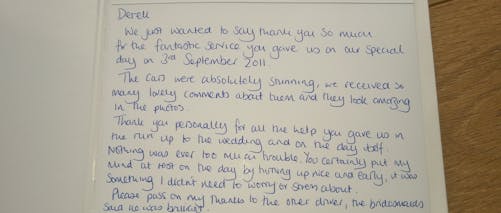 Derek
We just wanted to say thank you so much
for the fantastic service you gave us on our special
day on 3rd September 2011.
The cars were absolutely stunning, we received so
many lovely comments about them and they look amazing
in the photos.
Thank you personally for all the help you gave us in
the run up to the wedding and on the day itself.
Nothing was ever too much trouble. You certainly put my
mind at rest on the day by turning up nice and early, it was
something I didn't need to worry or stress about.
Please pass on my thanks to the other driver, the bridesmaids
said he was brilliant.